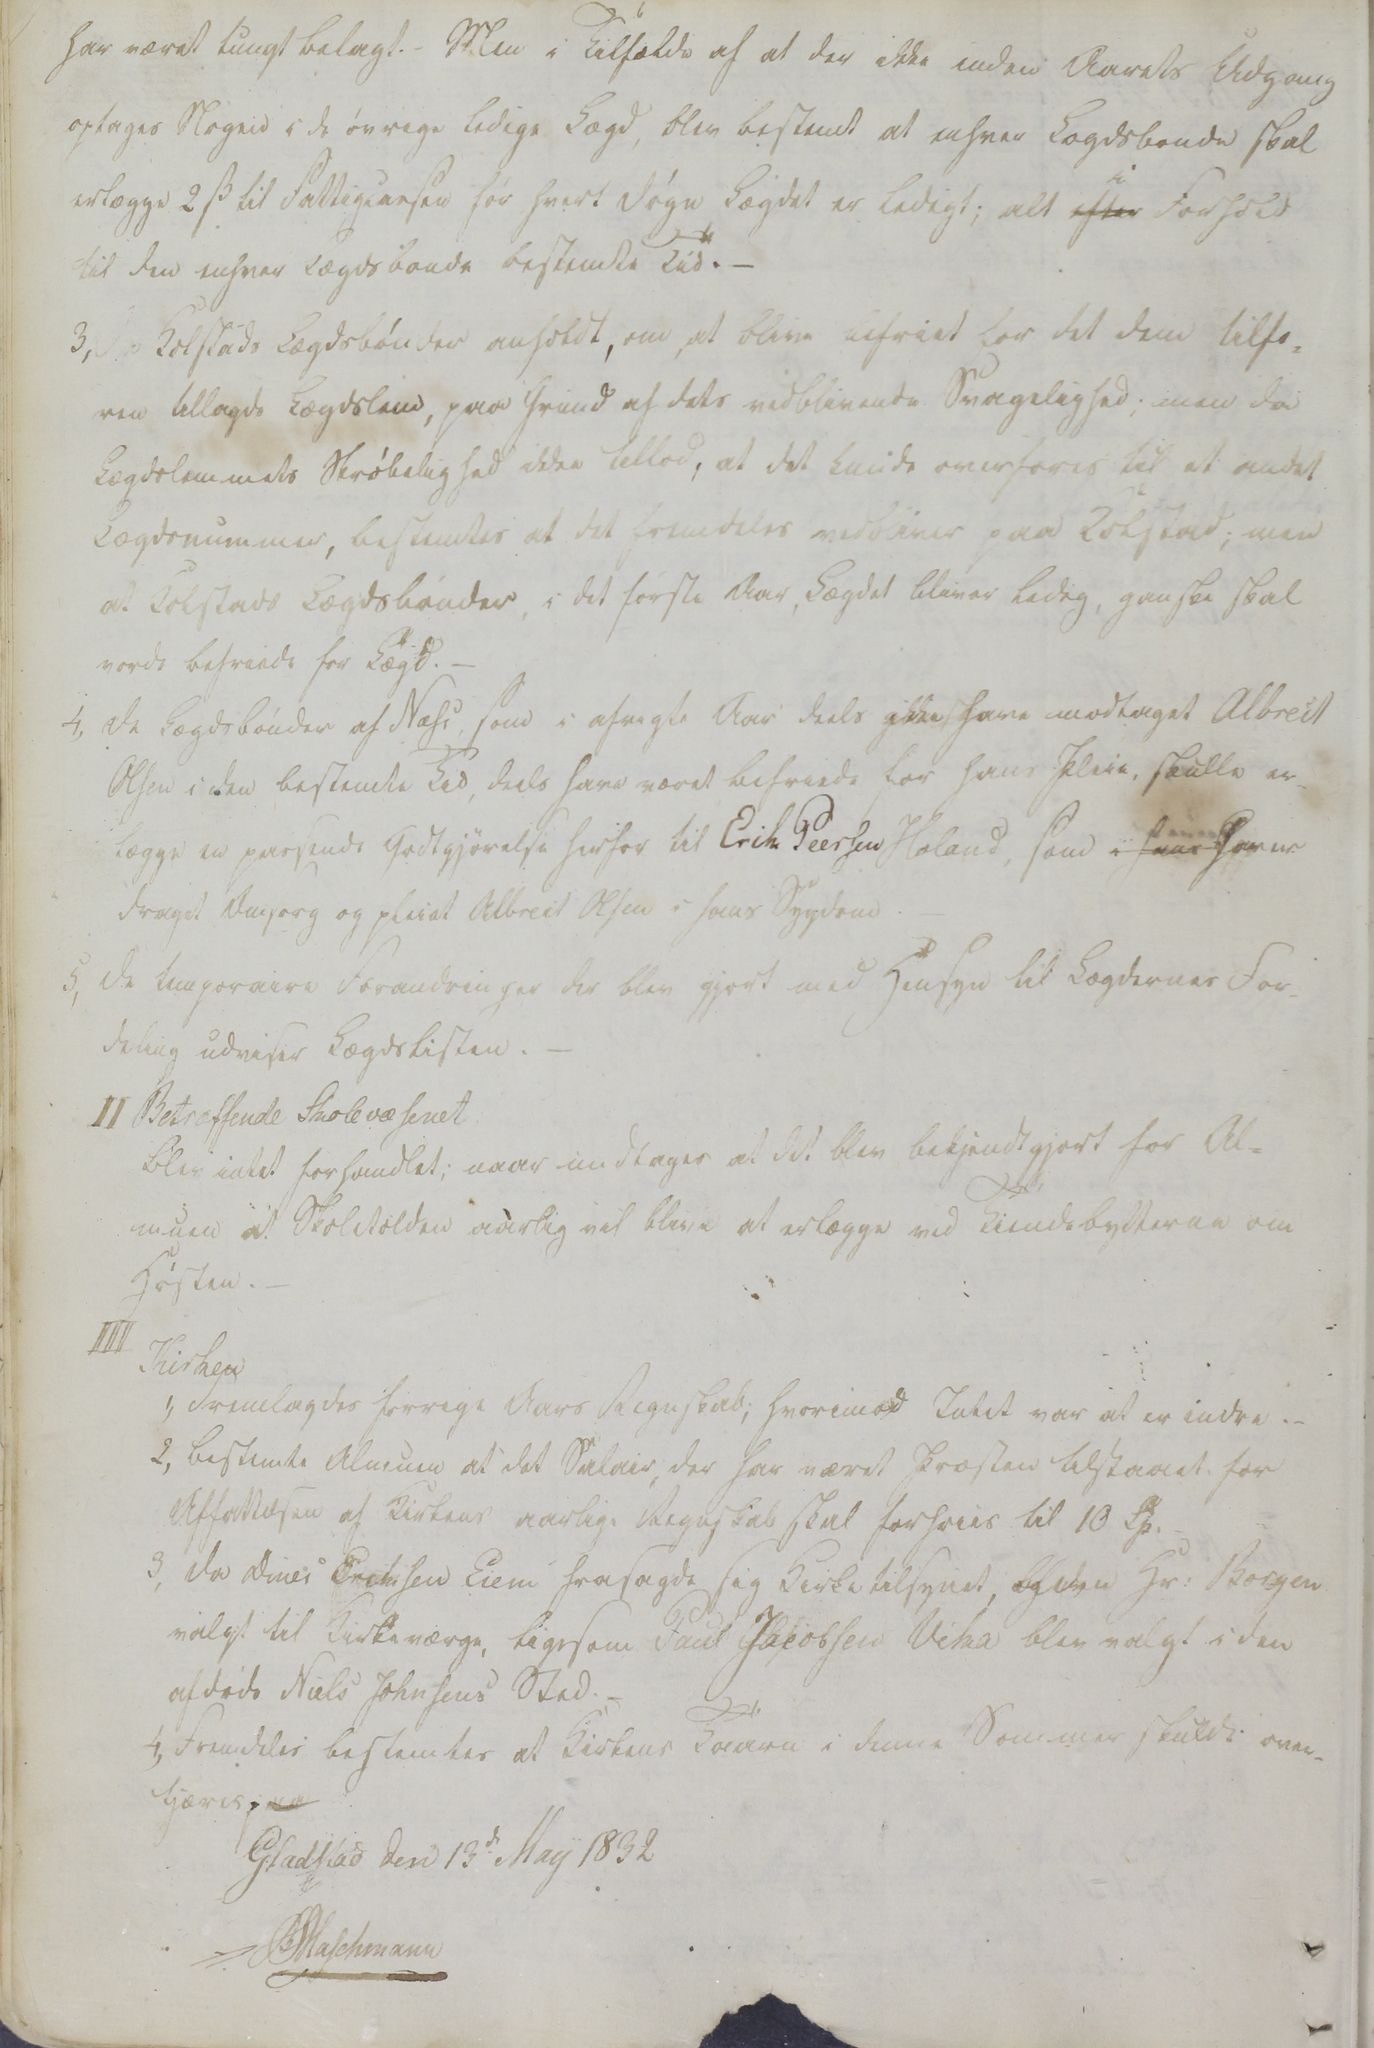 har været tungt belagt. - Men i Tilfælde af at der ikke inden Aarets Udgang
optages Nogen i de øvrige ledige Lægd, blev bestemt at enhver Lægdsbonde skal
erlægge 2 ß til Fattigcassen for hvert Døgn Lægdet er ledigt; alt efter i Forhold
til den enhver Lægdsbonde bestemte Tid. -
3, Kolstads Lægdsbønder anholdt, om, at blive befriet for det dem tilfo-
ren tillagde Lægdslem, paa Grund af dets vedblivende Svagelighed; men da
Lægdslemmets Skrøbelighed ikke tillod, at det kunde overføres til et andet
Lægdsnummer, bestemtes at det fremdeles vedbliver paa Kolstad; men
at Kolstads Lægdsbønder, i det første Aar, Lægdet bliver ledig, ganske skal
vorde befriede for Lægd. -
4, De Lægdsbønder af Næss, som i afvigte Aar deels ikke have modtaget Albreit
Olsen i den bestemte Tid, deels have været befriede for hans Pleie, skulle er-
lægge en passende Godtgjørelse herfor til Erik Peersen Høland, som i haver
draget Omsorg og pleiet Albreit Olsen i hans Sygdom. -
5, De temporaire Forandringer der blev gjort med Hensyn til Lægdernes For-
deling udviser Lægdslisten. -
II Betræffende Skolevæsenet
blev intet forhandlet; naar undtages at det blev bekjendtgjort for Al-
muen at Skoletolden aarlig vil blive at erlægge ved Tiendebytterne om
Høsten. -
III Kirken
1, Fremlagdes forrige Aars Regnskab; hvorimod Intet var at erindre. -
2, bestemte Almuen at det Salair, der har været Præsten tilstaaet for
Affattelsen af Kirkens aarlige Regnskab skal forhøies til 10 Sp. -
3, Da Dines Erichsen Liem frasagde sig Kirketilsynet, blev Hr: Borgen
valgt til Kirkeværge, ligesom Paul Jacobsen Vika blev valgt i den
afdøde Niels Johnsens Sted. -
4, Fremdeles bestemtes at Kirkens Taarn i denne Sommer skulde over-
tjæres.
Gladstad den 13d May 1832
Maschmann